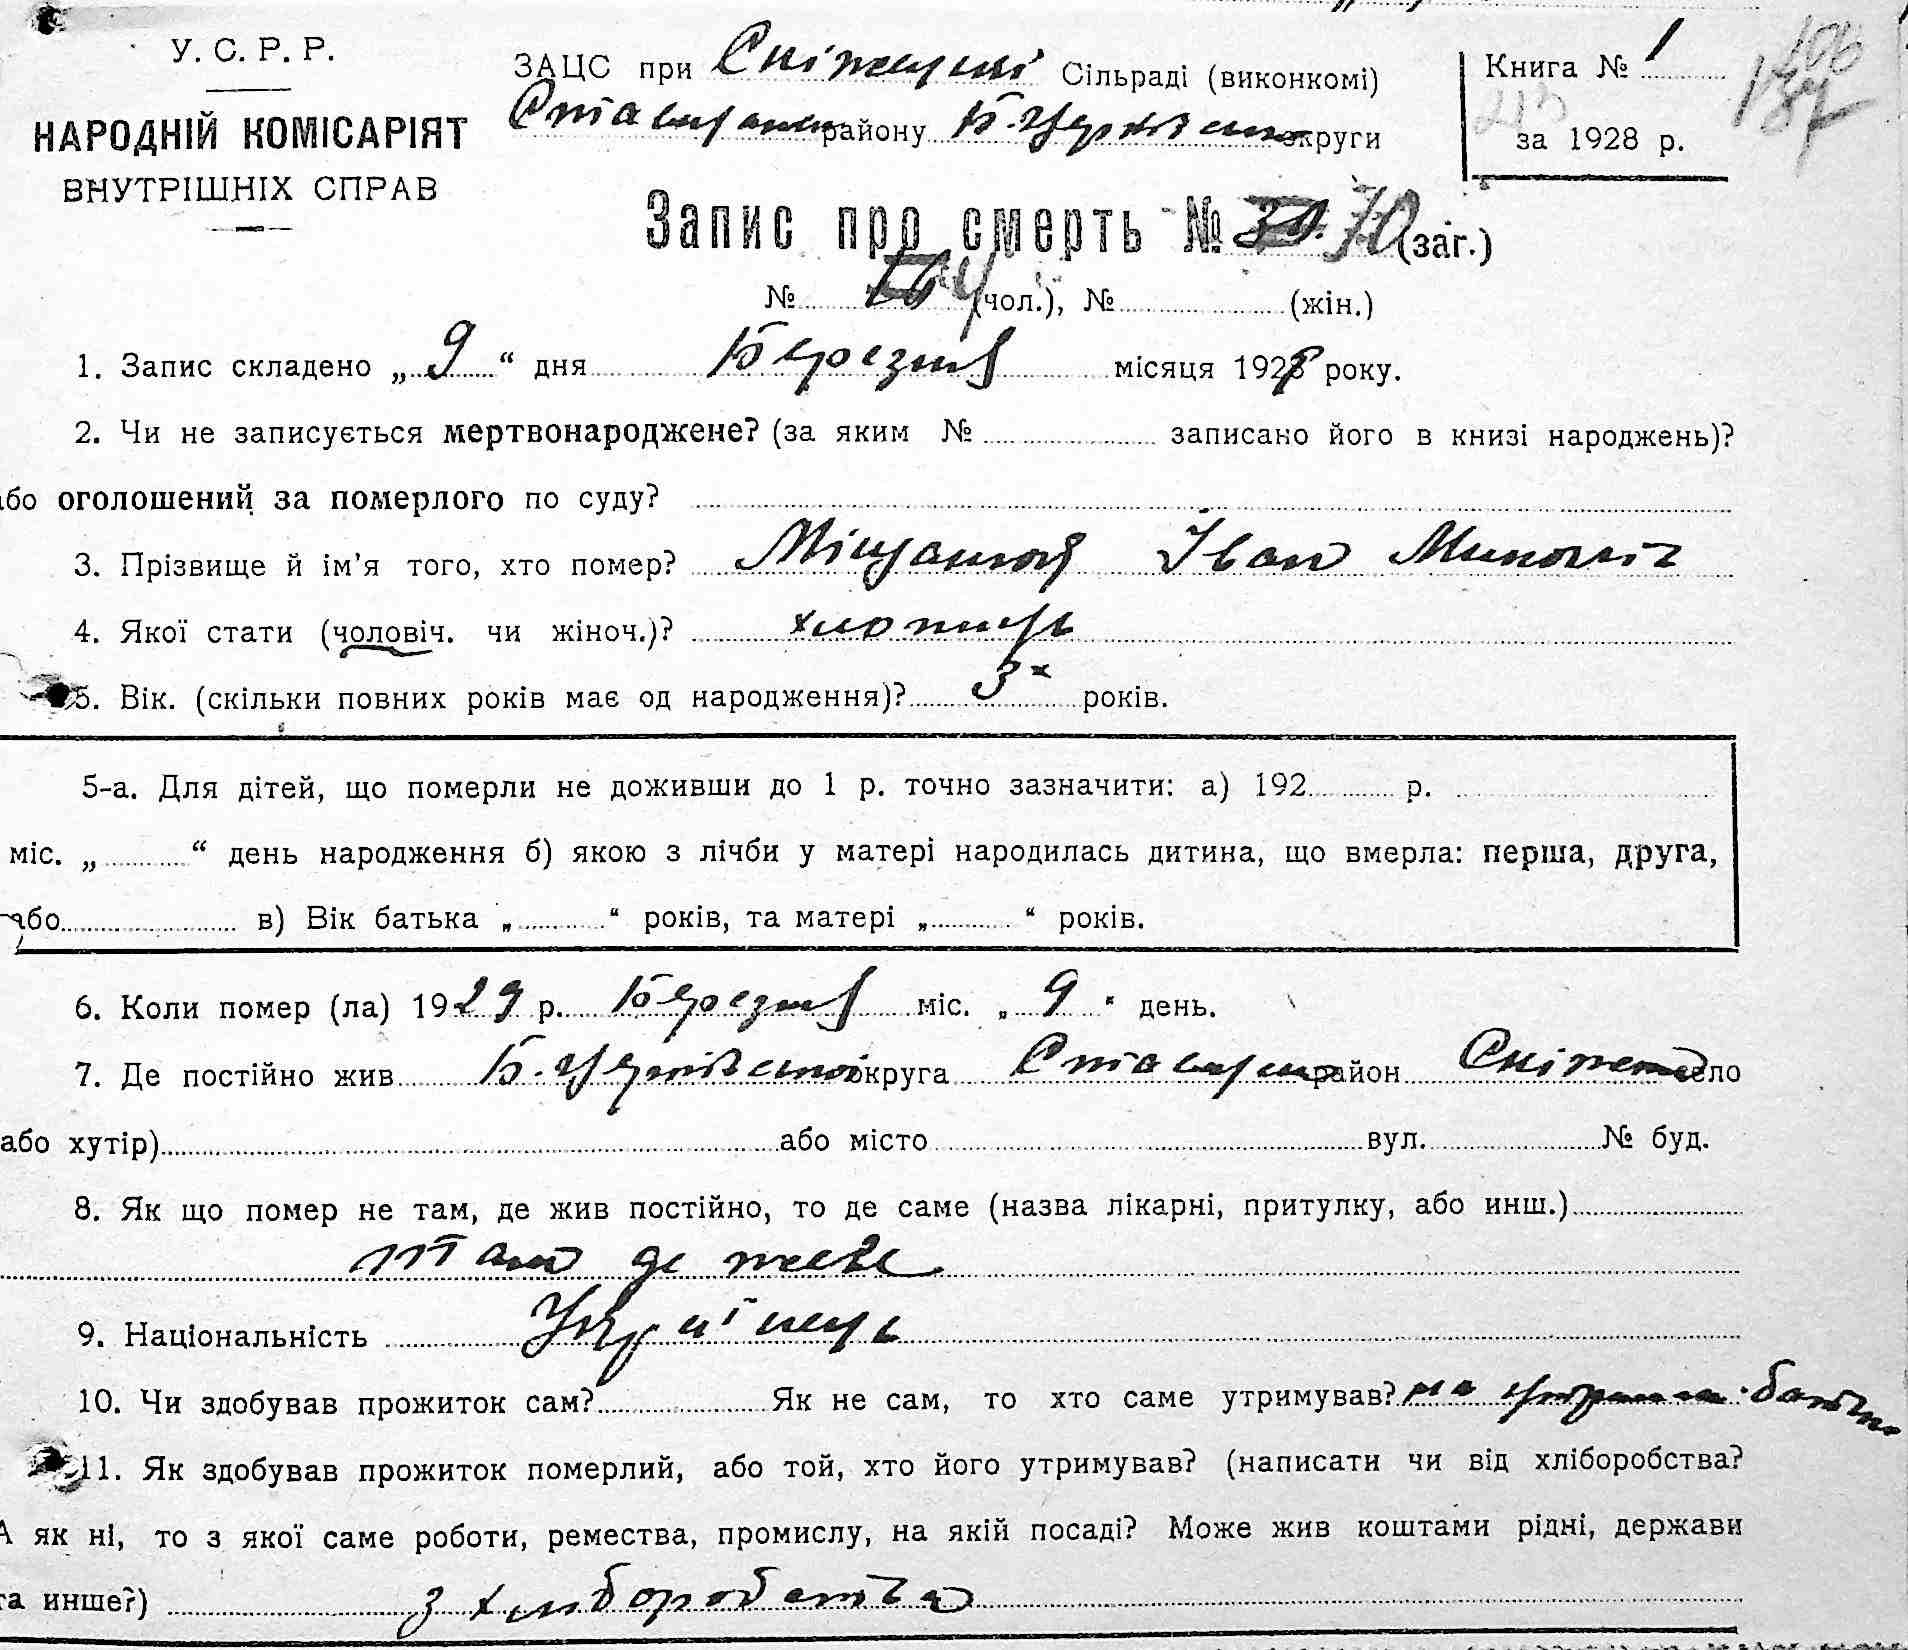 У. С. Р. Р.
НАРОДНІЙ КОМІСАРІЯТ
ВНУТРІШНІХ СПРАВ
ЗАЦС при Сніжецькі Сільраді (виконкомі)
району Б. Церківської округи
Книга № 1
за 1928 р.
Запис про смерть № 70 (заг.)
№ (чол.), № (жін.)
1. Запис складено „ 9 “ дня Березня місяця 192 року.
2. Чи не записується мертвонароджене? (за яким № записано його в книзі народжень)?
або оголошений за померлого по суду?
3. Прізвище й ім'я того, хто помер? Іван
4. Якої стати (чоловіч. чи жіноч.)? хлопець
5. Вік. (скільки повних років має од народження)? 3х років.
5-а. Для дітей, що померли не доживши до 1 р. точно зазначити: а) 192 р.
міс. „ “ день народження б) якою з лічби у матері народилась дитина, що вмерла: перша, друга,
або в) Вік батька „ “ років, та матері „ “ років.
6. Коли помер (ла) 1929 р. Березня міс. „ 9 “ день.
7. Де постійно жив Б. Церківської округа район село
або хутір) або місто вул. № буд.
8. Як що помер не там, де жив постійно, то де саме (назва лікарні, притулку, або инш.)
там де живе
9. Національність Українець
10. Чи здобував прожиток сам? Як не сам, то хто саме утримував? на утриман. батьк
11. Як здобував прожиток померлий, або той, хто його утримував? (написати чи від хліборобства?
А як ні, то з якої саме роботи, ремества, промислу, на якій посаді? Може жив коштами рідні, держави
та инше?) з хліборобства